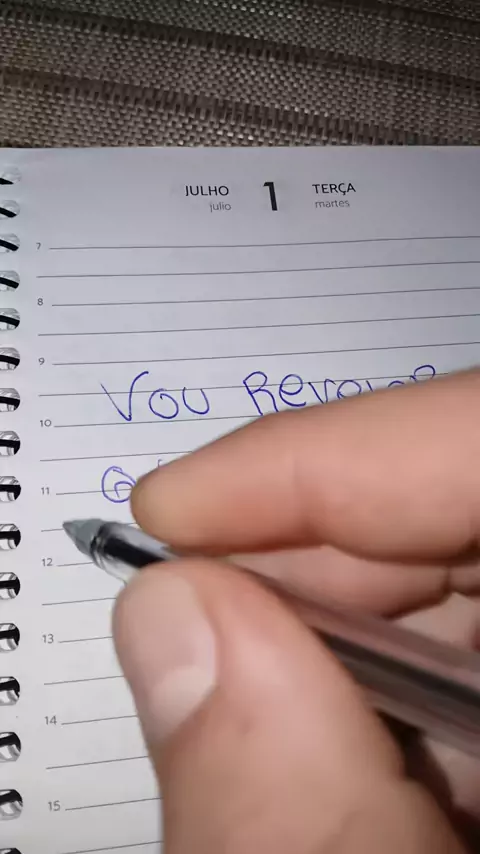 JULHO 1 TERÇA
julio martes
7
8
9
Vou
10
11
12
13
14
15